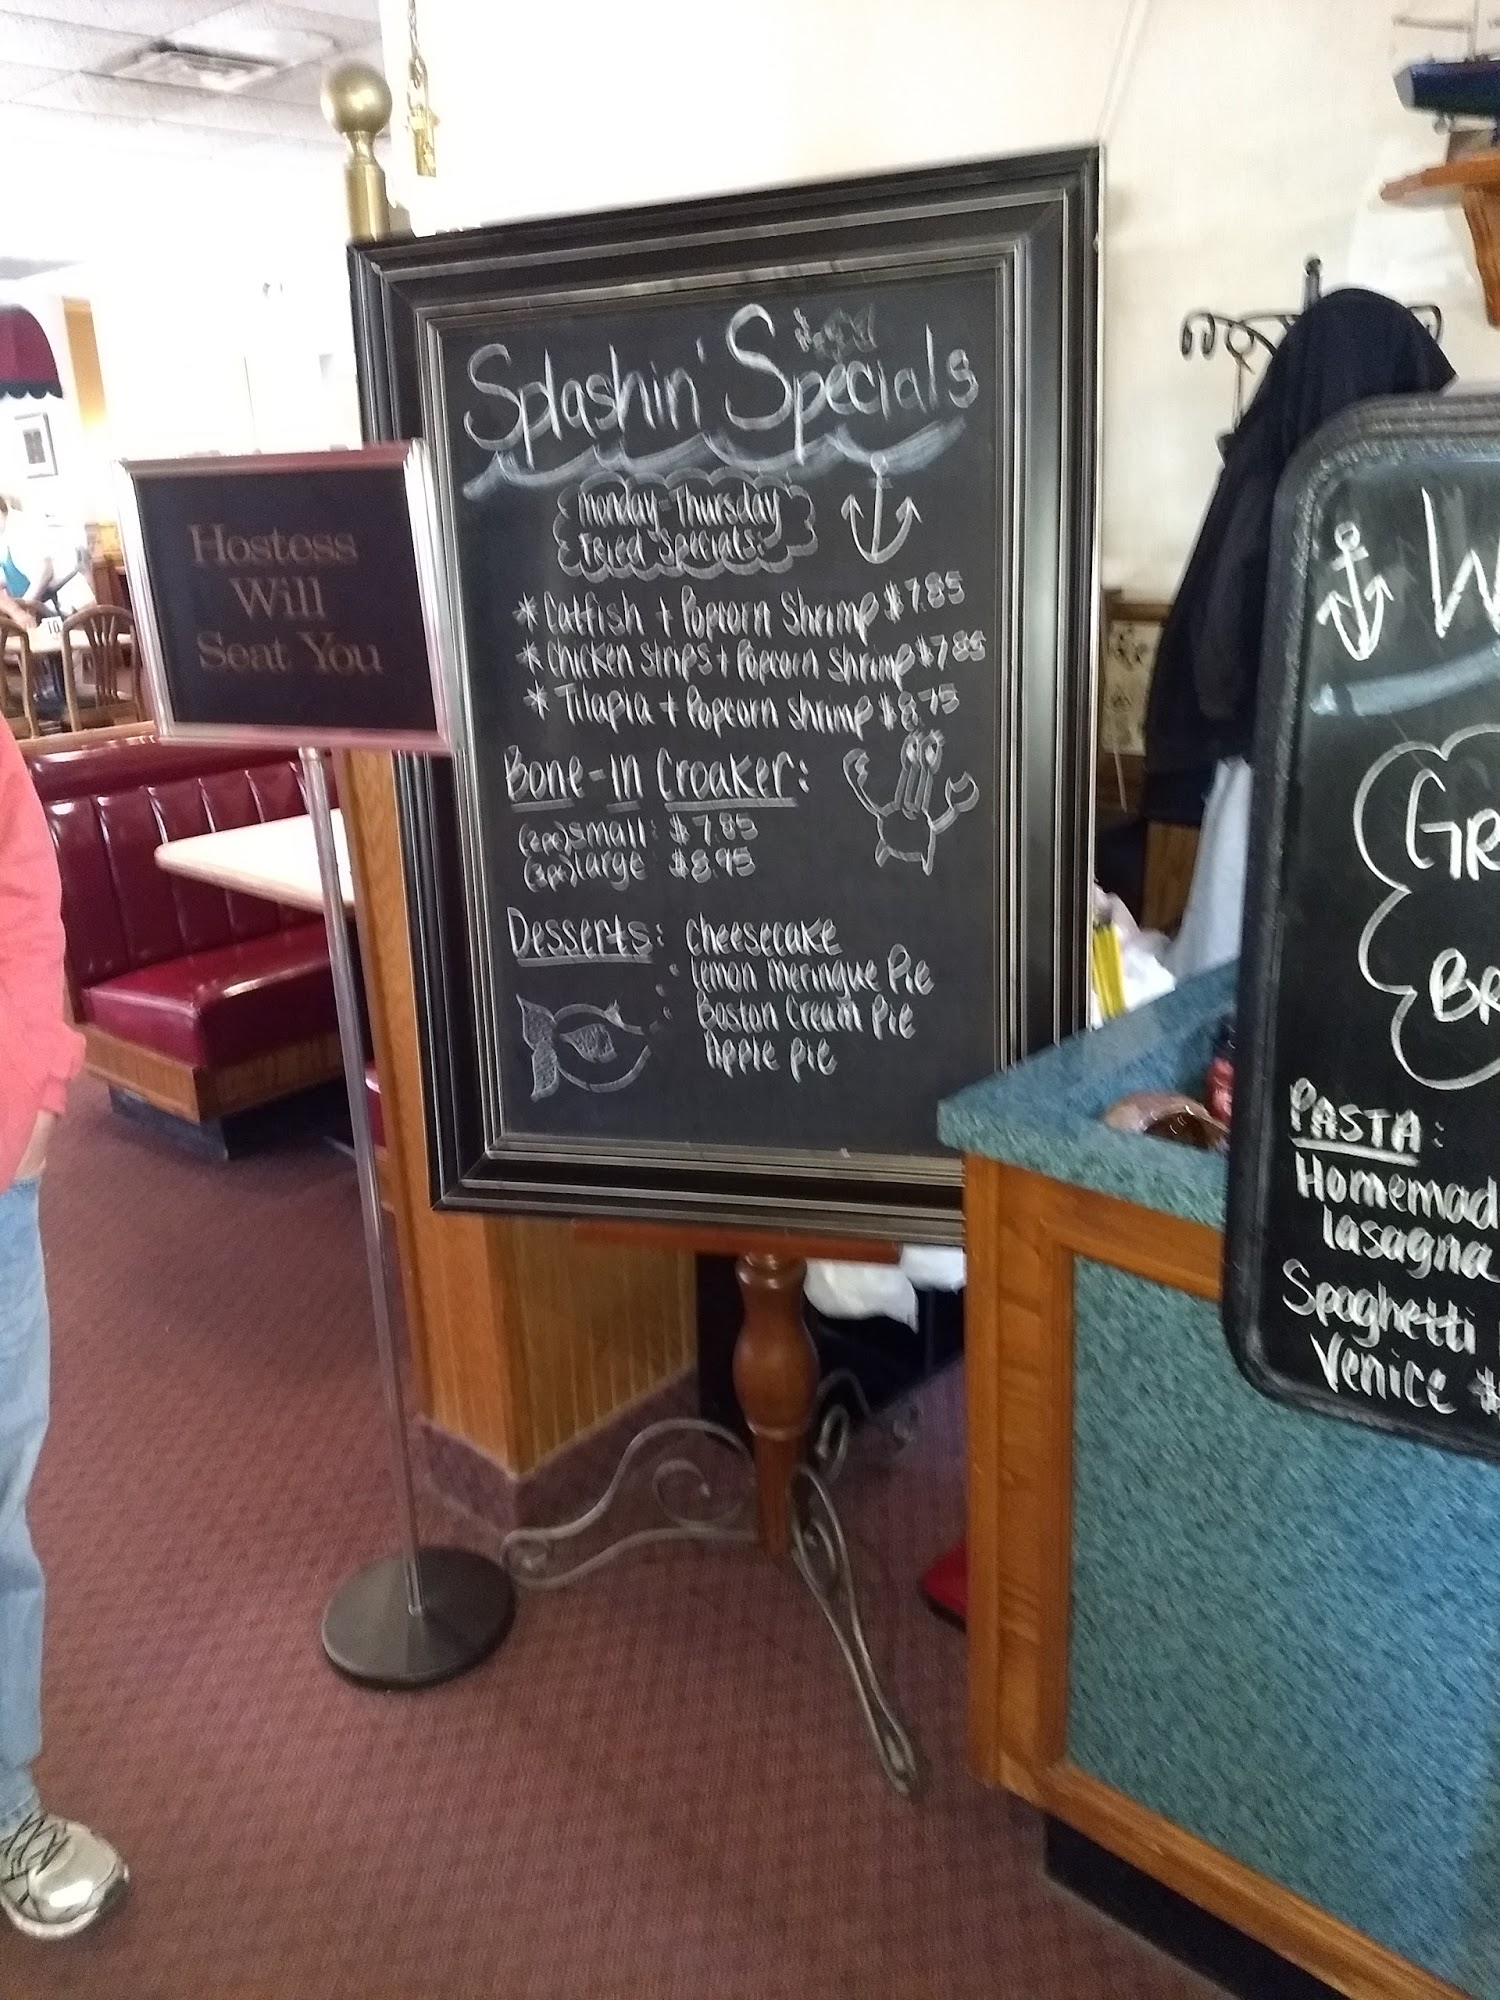 Hostess
Will
Seat You
Splashin' Specials
Monday-Thursday
Fried Specials:
* Catfish + Popcorn Shrimp $7.85
* Chicken strips + Popcorn Shrimp $7.85
* Tilapia + Popcorn shrimp $8.75
Bone-In Croaker:
(2pc) small: $7.85
(3pc) large $8.95
Desserts: Cheesecake
Lemon Meringue Pie
Boston Cream Pie
Apple pie
W
GR
BR
PASTA:
Homemad
lasagna
Spaghetti
Venice $